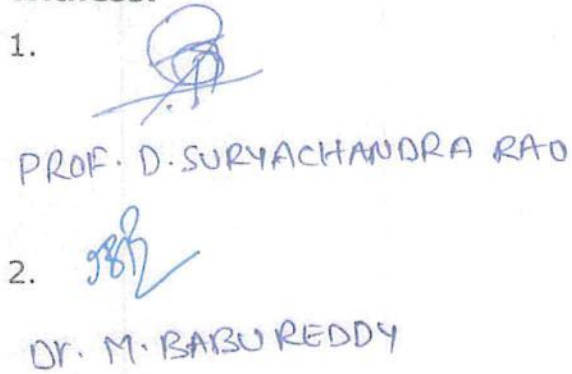 1.
PROF. D. SURYACHANDRA RAO
2.
Dr. M. BABU REDDY